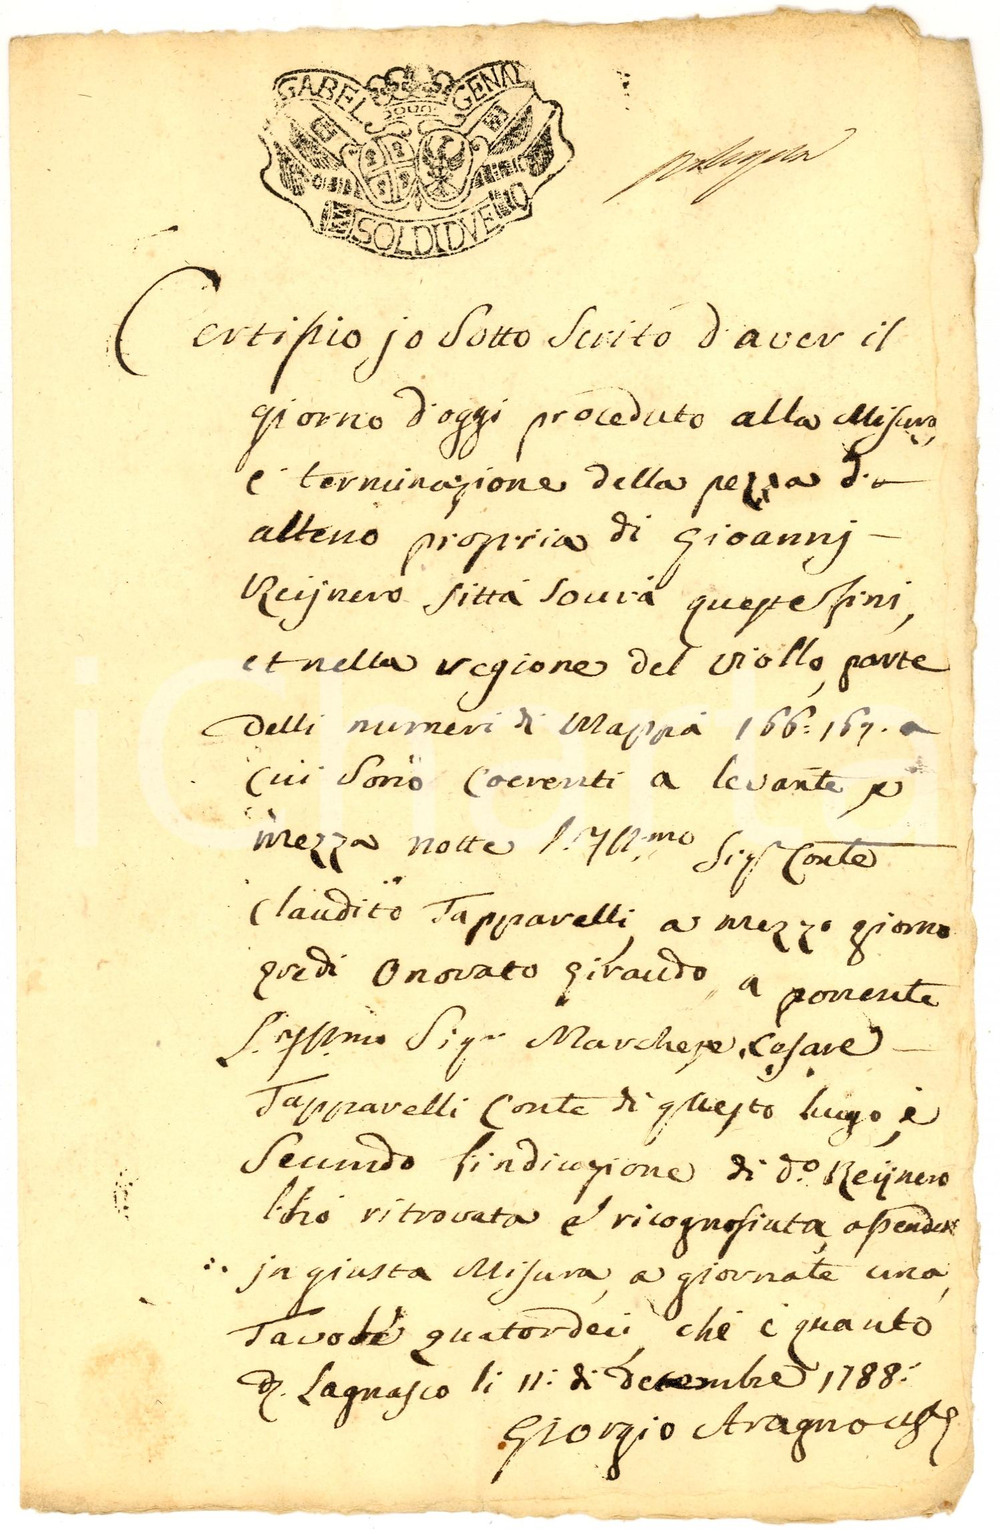 GABEL GENAL
SOLDI DVE
Certifico jo Sotto Scrito d'aver il
giorno d'oggi proceduto alla Misura,
e' terminazione della pezza di
alteno propria di Gioannj
Reijnero sitta soura queste fini,
et nella regione del Viollo, parte
delli numeri di Mappa 166: 167. a
cui sono coerenti a levante e
mezza notte l'Ill:mo Sigr Conte
Claudito Tapparelli, a mezzo giorno
gredi Onorato Giraudo, a ponente
L'Ill:mo Sigr Marchese Cesare
Tapparelli Conte di questo lugo, e
Secundo l'indicazione di d.o Reijnero
ho ritrovata e' ricognosiuta, assendere
jn giusta Misura, a giornate una,
Tavole quatordeci, che e' quanto
Lagnasco li 11: di decembre 1788:
Giorgio Aragno